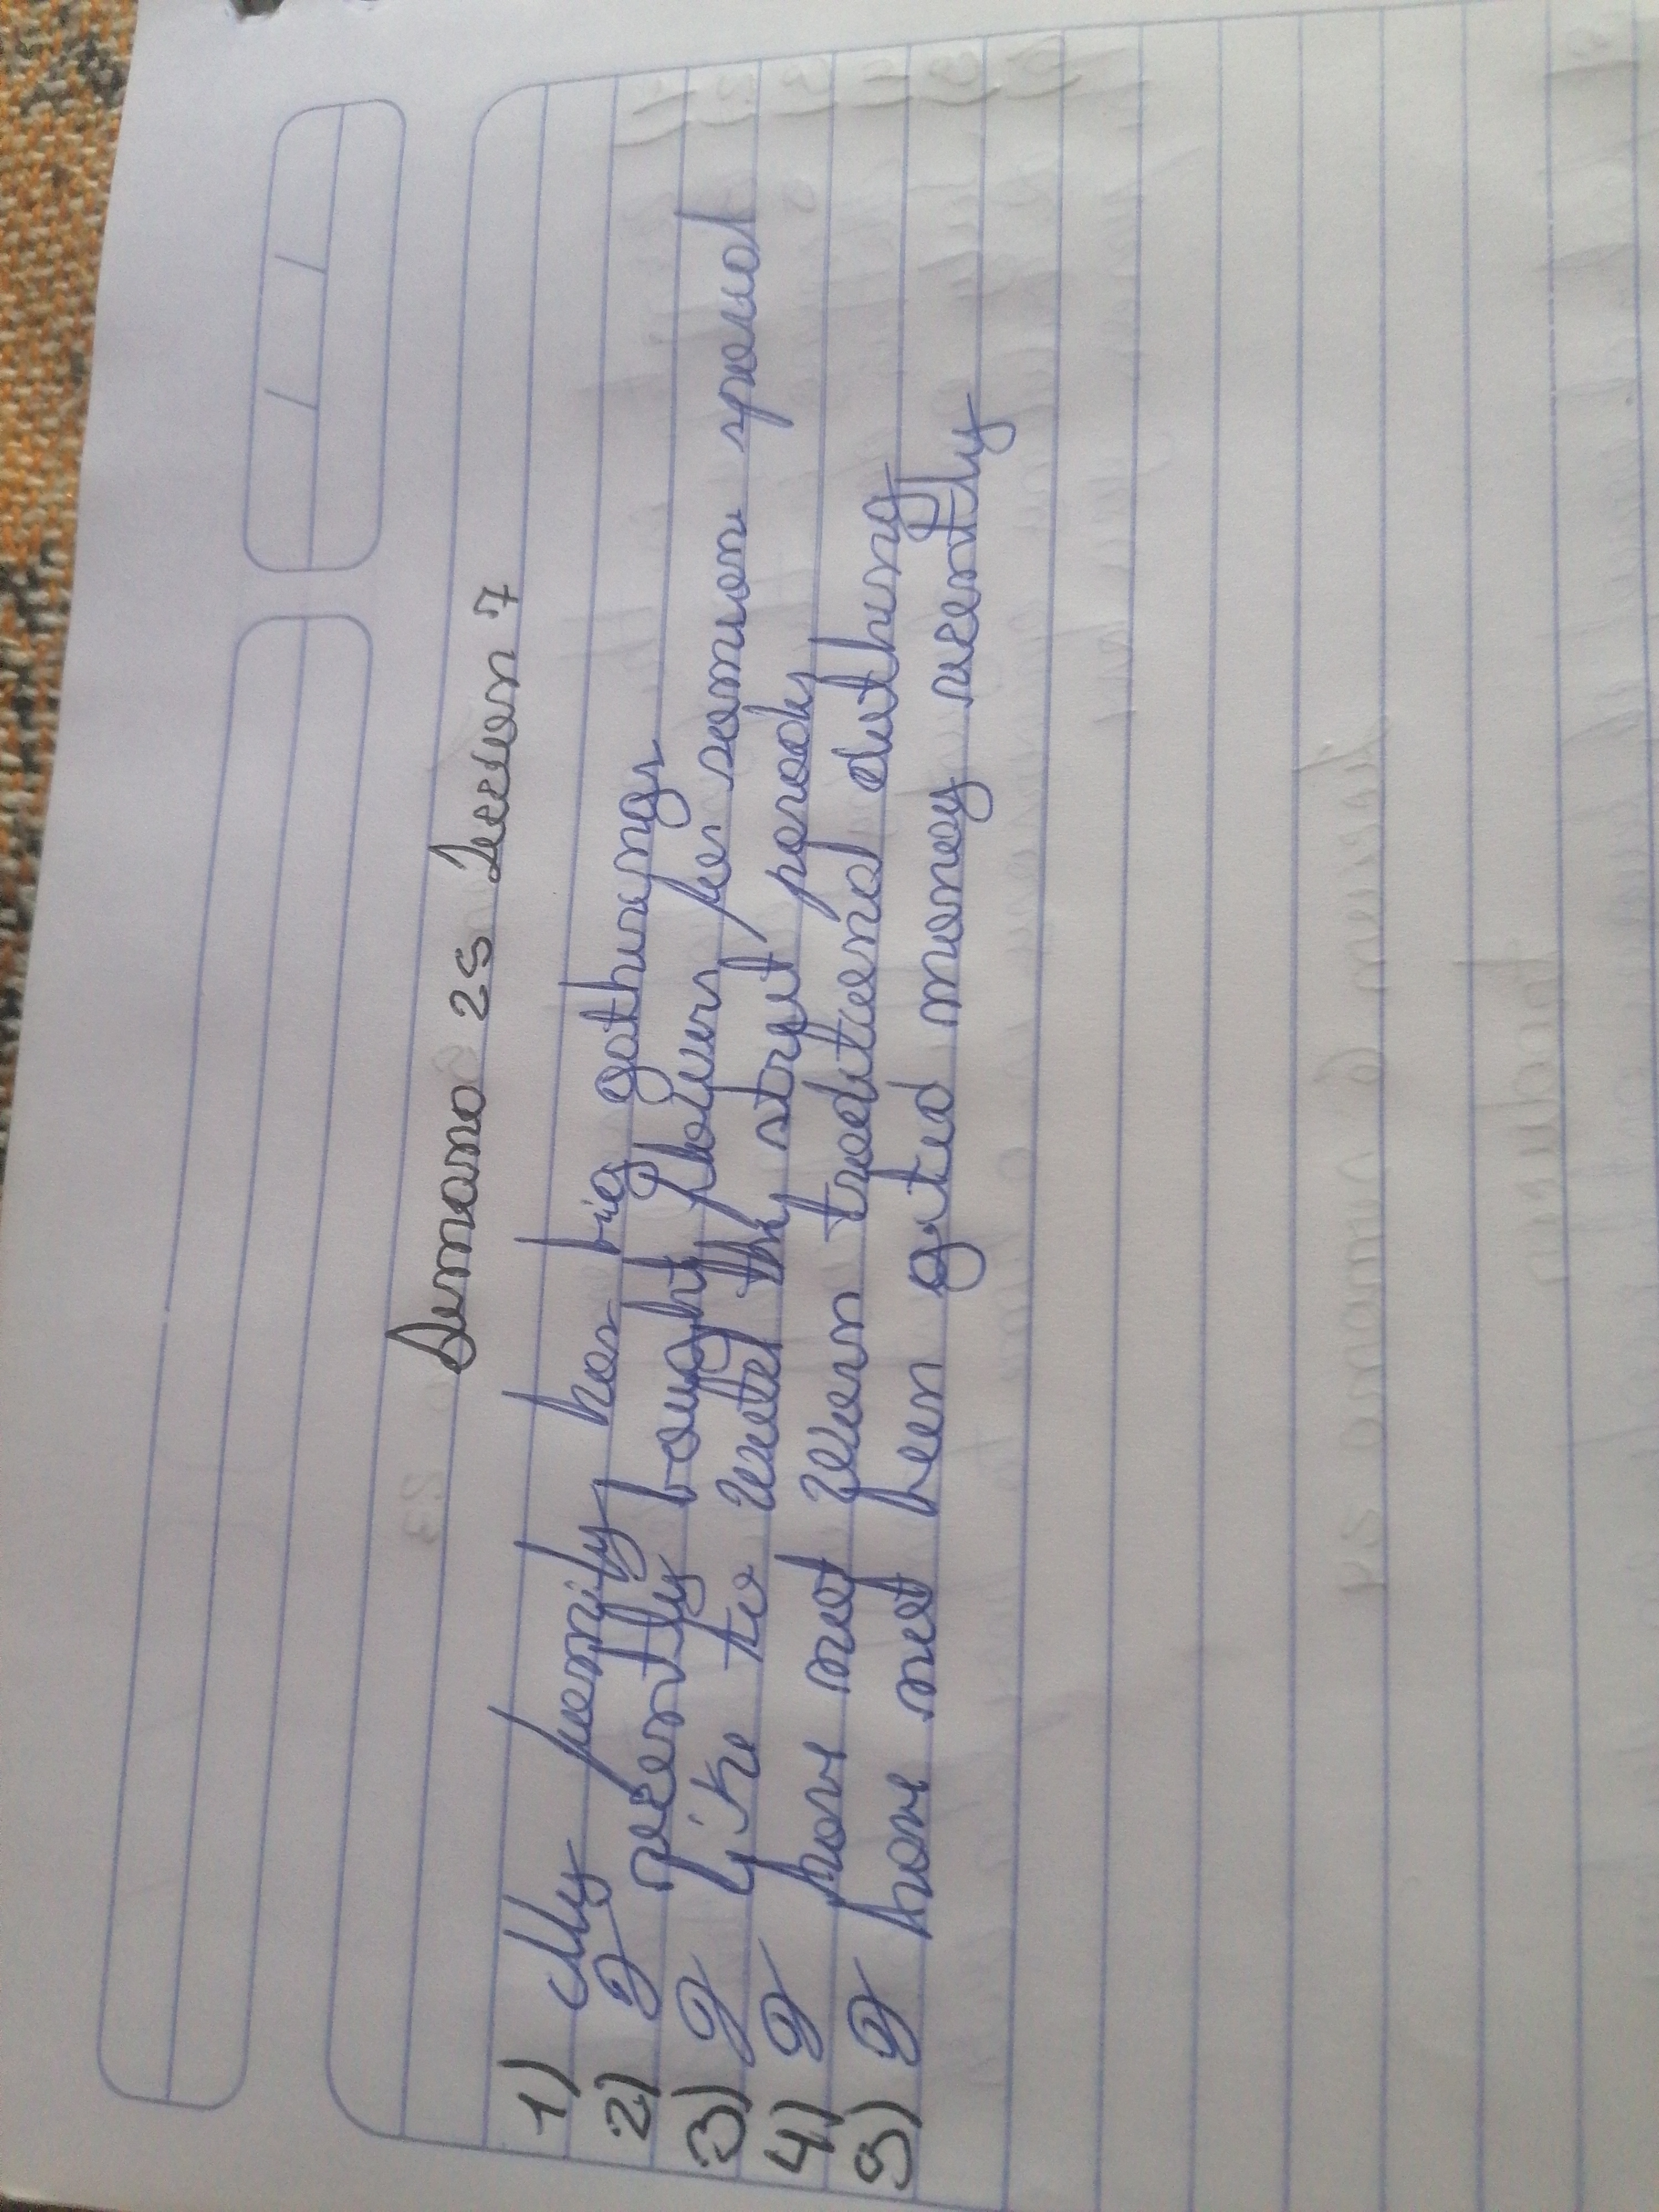 Semana 25 Lesson 7
1) My family has big gatherings
2) I recently bought flowers for someon special
3) I like to watch the stryet parody
4) I have not worn traditional cluthing
5) I have not been gited money recently